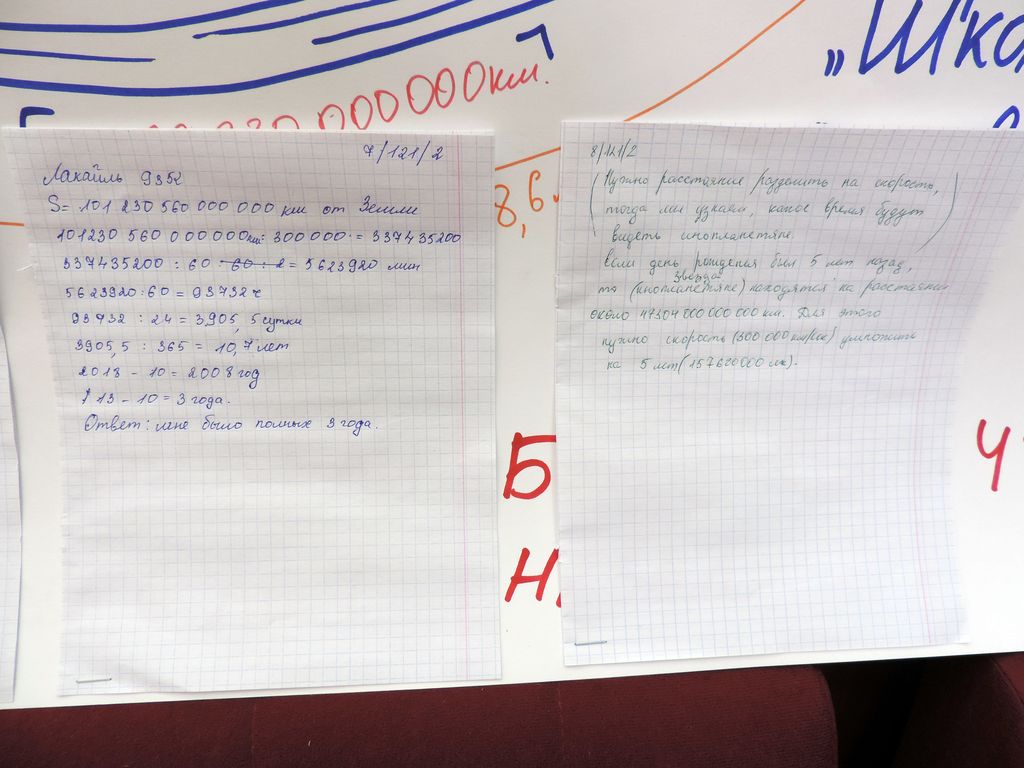 „Шко
000 000 км.
8,6
7/121/2
Лакайль 9352
S= 101 230 560 000 000 км от Земли
101230 560 000000км: 300 000 = 337435200
337435200 : 60 : 60 : 2 = 5623920 мин
5623920:60 = 93732 ч
93732 : 24 = 3905, 5 сутки
3905,5 : 365 = 10,7 лет
2018 - 10 = 2008 год
13 - 10 = 3 года.
Ответ: мне было полных 3 года.
8/121/2
(Нужно расстояние разделить на скорость,
тогда мы узнаем, какое время будут
видеть инопланетяне.)
Если день рождения был 5 лет назад,
звезда
то (инопланетяне) находятся на расстоянии
около 47304 000 000 000 км. Для этого
нужно скорость (300 000 км/сек) умножить
на 5 лет (157680000 сек).
Б
Н
Ч